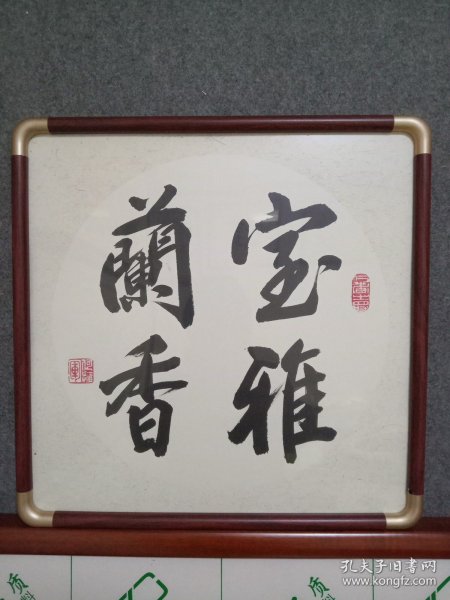 室雅
蘭香
质
质
孔夫子旧书网
www.kongfz.com